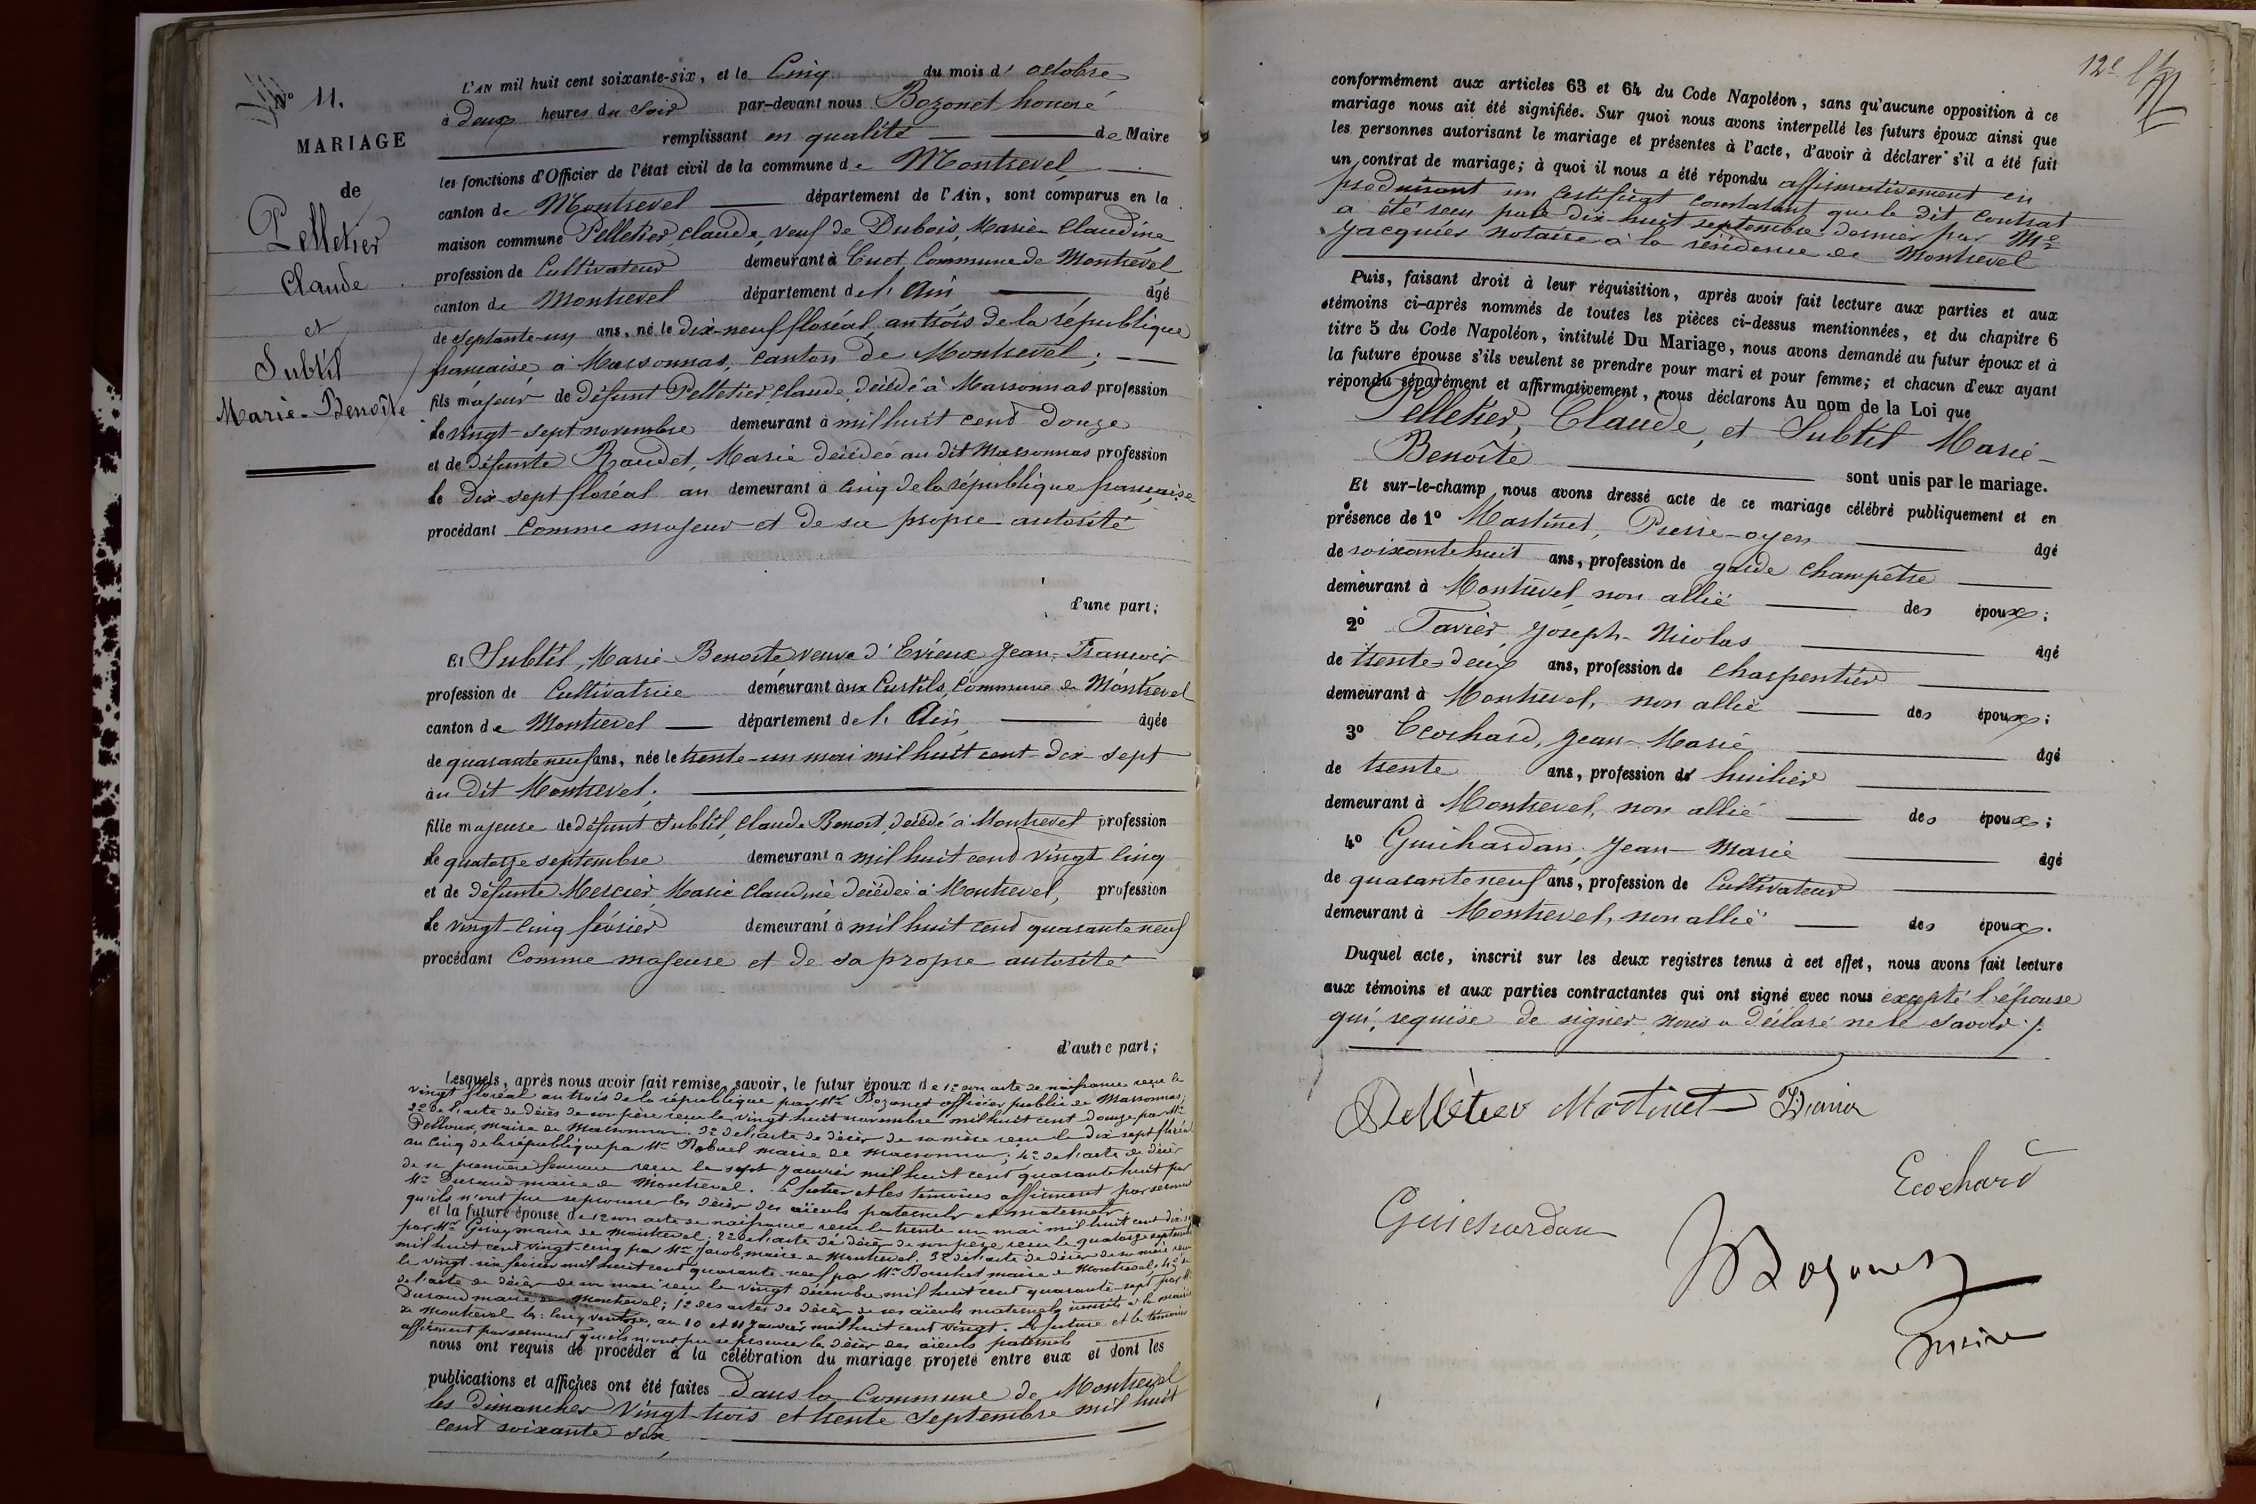 N° 11.
MARIAGE
de
Pelletier
Claude
et
Subtil
Marie-Benoîte
L'AN mil huit cent soixante-six, et le Cinq du mois d' octobre
à deux heures du Soir par-devant nous Bozonet honoré
remplissant en qualité de Maire
les fonctions d'Officier de l'état civil de la commune de Montrevel
canton de Montrevel département de l'Ain, sont comparus en la
maison commune Pelletier, Claude, veuf de Dubois, Marie Claudine
profession de Cultivateur demeurant à Cuet Commune de Montrevel
canton de Montrevel département de l' Ain âgé
de septante-un ans, né le dix-neuf floréal, an trois de la république
française à Marsonnas, canton de Montrevel ;
fils majeur de défunt Pelletier, Claude, décédé à Marsonnas profession
le vingt-sept novembre demeurant à mil huit cent douze
et de défunte Raudet, Marie décédée au dit Marsonnas profession
le dix sept floréal an demeurant à cinq de la république française
procédant comme majeur et de sa propre autorité
d'une part ;
Et Subtil, Marie-Benoîte veuve d'Evieux Jean-François
profession de Cultivatrice demeurant aux Curtils, Commune de Montrevel
canton de Montrevel département de l' Ain âgée
de quarante neuf ans, née le trente-un mai mil huit cent dix-sept
au dit Montrevel ;
fille majeure de défunt Subtil, Claude Benoît, décédé à Montrevel profession
le quatorze septembre demeurant à mil huit cent vingt cinq
et de défunte Mercier, Marie Claudine décédée à Montrevel, profession
le vingt-cinq février demeurant à mil huit cent quarante neuf
procédant Comme majeure et de sa propre autorité
d'autre part ;
Lesquels, après nous avoir fait remise, savoir, le futur époux de 1° son acte de naissance reçu le
vingt floréal an trois de la république par Mr Bozonet officier public de Marsonnas ;
2° de l'acte de décès de son père reçu le vingt-huit novembre mil huit cent douze par Mr
maire de Marsonnas. 3° de l'acte de décès de sa mère reçu le dix sept floréal
an cinq de la république par Mr maire de Marsonnas ; 4° de l'acte de décès
de sa première femme reçu le sept janvier mil huit cent quarante huit par
Mr Durand maire de Montrevel. Le futur et les témoins affirment par serment
qu'ils n'ont pu se procurer les décès des aïeuls paternels et maternels
et la future épouse de 1° son acte de naissance reçu le trente un mai mil huit cent dix-sept
par Mr maire de Montrevel ; 2° de l'acte de décès de son père reçu le quatorze septembre
mil huit cent vingt-cinq par Mr Jacob maire de Montrevel, 3° de l'acte de décès de sa mère reçu
le vingt-six février mil huit cent quarante-neuf par Mr Bouchet maire de Montrevel ; 4°
de l'acte de décès de son mari reçu le vingt décembre mil huit cent quarante-sept par Mr
Durand maire de Montrevel ; des actes de décès de ses aïeuls maternels inscrits à la mairie
de Montrevel les : cinq ventose, an 10 et 11 janvier mil huit cent vingt. La future et les témoins
affirment par serment qu'ils n'ont pu se procurer les décès des aïeuls paternels
nous ont requis de procéder à la célébration du mariage projeté entre eux et dont les
publications et affiches ont été faites Dans la Commune de Montrevel
les Dimanches Vingt-trois et trente Septembre mil huit
cent soixante six
12e
conformément aux articles 63 et 64 du Code Napoléon, sans qu'aucune opposition à ce
mariage nous ait été signifiée. Sur quoi nous avons interpellé les futurs époux ainsi que
les personnes autorisant le mariage et présentes à l'acte, d'avoir à déclarer s'il a été fait
un contrat de mariage ; à quoi il nous a été répondu affirmativement en
produisant un certificat constatant que le dit contrat
a été reçu par le dix-huit septembre dernier par Me
Jacquier notaire à la résidence de Montrevel
Puis, faisant droit à leur réquisition, après avoir fait lecture aux parties et aux
témoins ci-après nommés de toutes les pièces ci-dessus mentionnées, et du chapitre 6
titre 5 du Code Napoléon, intitulé Du Mariage, nous avons demandé au futur époux et à
la future épouse s'ils veulent se prendre pour mari et pour femme ; et chacun d'eux ayant
répondu séparément et affirmativement, nous déclarons Au nom de la Loi que
Pelletier, Claude, et Subtil Marie-
Benoîte sont unis par le mariage.
Et sur-le-champ nous avons dressé acte de ce mariage célébré publiquement et en
présence de 1° Martinet, Pierre-oyen âgé
de soixante huit ans, profession de garde champêtre
demeurant à Montrevel, non allié des époux ;
2° Favier, Joseph-Nicolas âgé
de trente-deux ans, profession de charpentier
demeurant à Montrevel, non allié des époux ;
3° Ecochard, Jean-Marie âgé
de trente ans, profession de huilier
demeurant à Montrevel, non allié des époux ;
4° Guichardan, Jean-Marie âgé
de quarante neuf ans, profession de Cultivateur
demeurant à Montrevel, non allié des époux.
Duquel acte, inscrit sur les deux registres tenus à cet effet, nous avons fait lecture
aux témoins et aux parties contractantes qui ont signé avec nous excepté l'épouse
qui, requise de signer nous a déclaré ne le savoir ./.
Pelletier Martinet Favier
Ecochard
Guichardan
Bozonet
maire